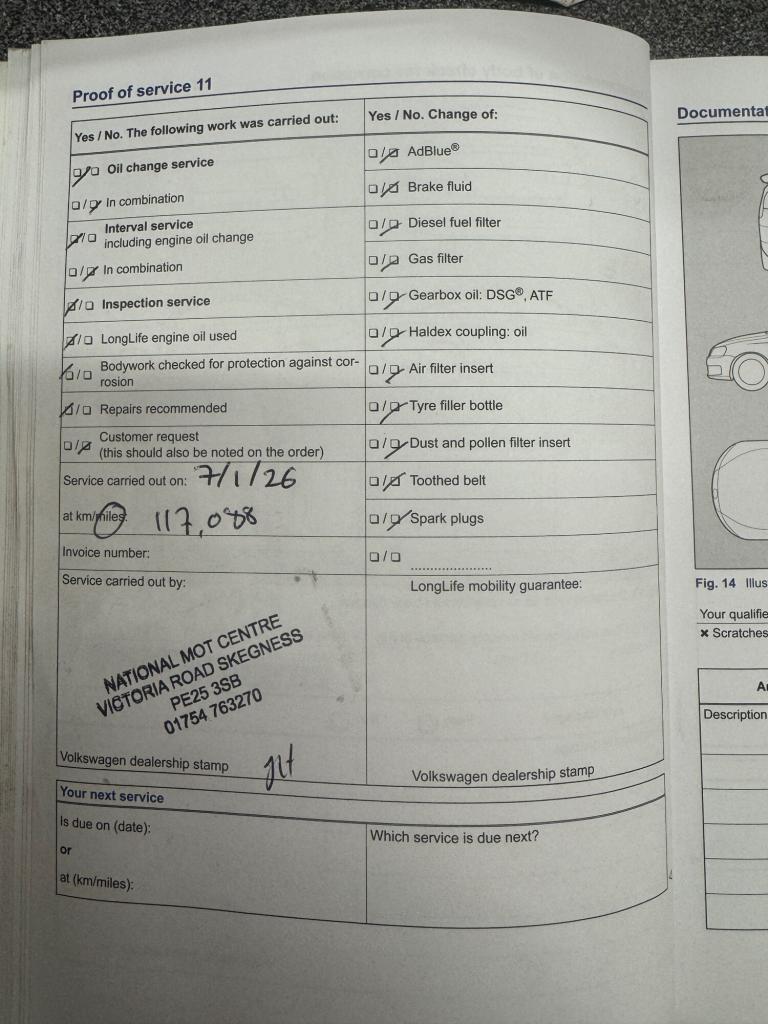 Proof of service 11
Yes / No. The following work was carried out:
Oil change service
In combination
Interval service
including engine oil change
In combination
Inspection service
LongLife engine oil used
Bodywork checked for protection against cor-
rosion
Repairs recommended
Customer request
(this should also be noted on the order)
Service carried out on: 7/1/26
at km/miles: 117,088
Invoice number:
Service carried out by:
NATIONAL MOT CENTRE
VICTORIA ROAD SKEGNESS
PE25 3SB
01754 763270
Volkswagen dealership stamp
Yes / No. Change of:
AdBlue®
Brake fluid
Diesel fuel filter
Gas filter
Gearbox oil: DSG®, ATF
Haldex coupling: oil
Air filter insert
Tyre filler bottle
Dust and pollen filter insert
Toothed belt
Spark plugs
LongLife mobility guarantee:
Volkswagen dealership stamp
Your next service
Is due on (date):
or
at (km/miles):
Which service is due next?
Documentat
Fig. 14 Illus
Your qualifie
× Scratches
Description